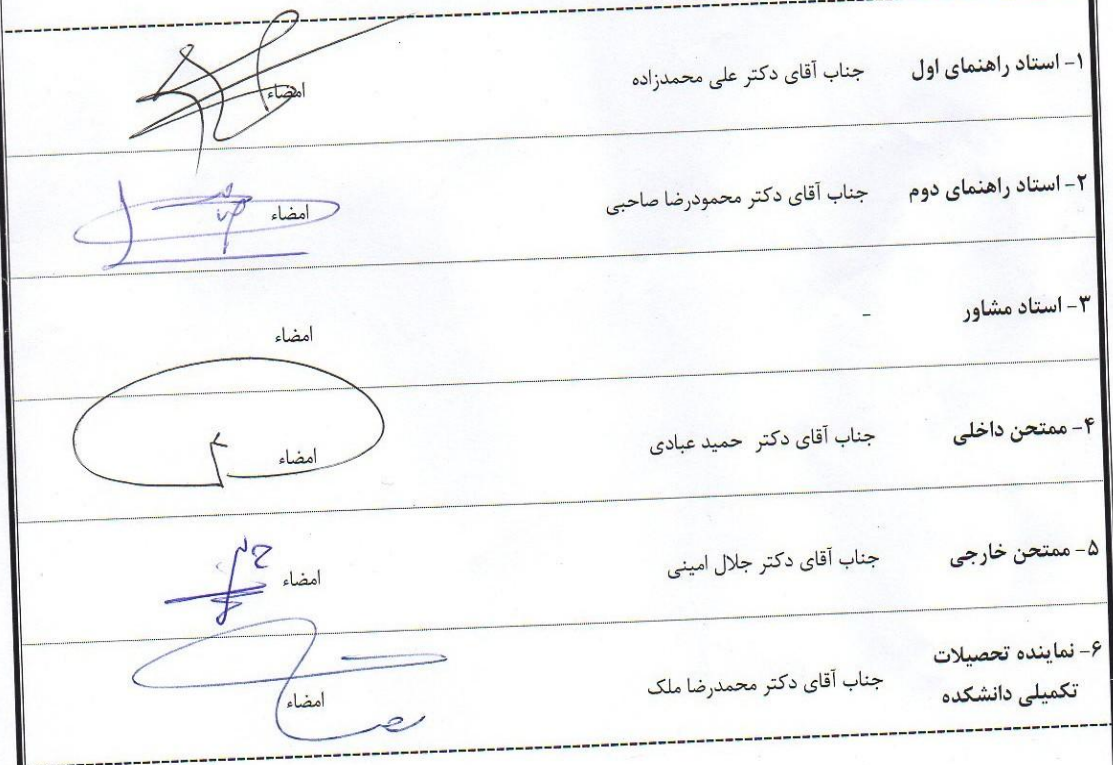 ۱- استاد راهنمای اول جناب آقای دکتر علی محمدزاده امضاء
۲- استاد راهنمای دوم جناب آقای دکتر محمودرضا صاحبی امضاء
۳- استاد مشاور - امضاء
۴- ممتحن داخلی جناب آقای دکتر حمید عبادی امضاء
۵- ممتحن خارجی جناب آقای دکتر جلال امینی امضاء
۶- نماینده تحصیلات
تکمیلی دانشکده جناب آقای دکتر محمدرضا ملک امضاء